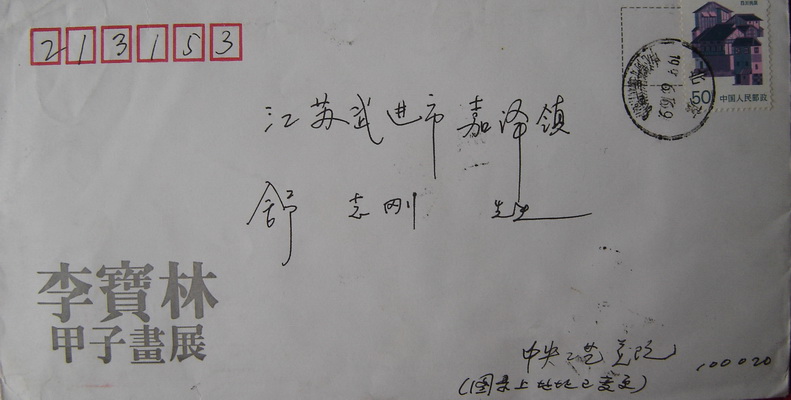 213153
50 中国人民邮政
北京
江苏武进市嘉泽镇
舒志刚 先生
李寶林
甲子畫展
中央工艺美院
100020
(图录上地址已变更)